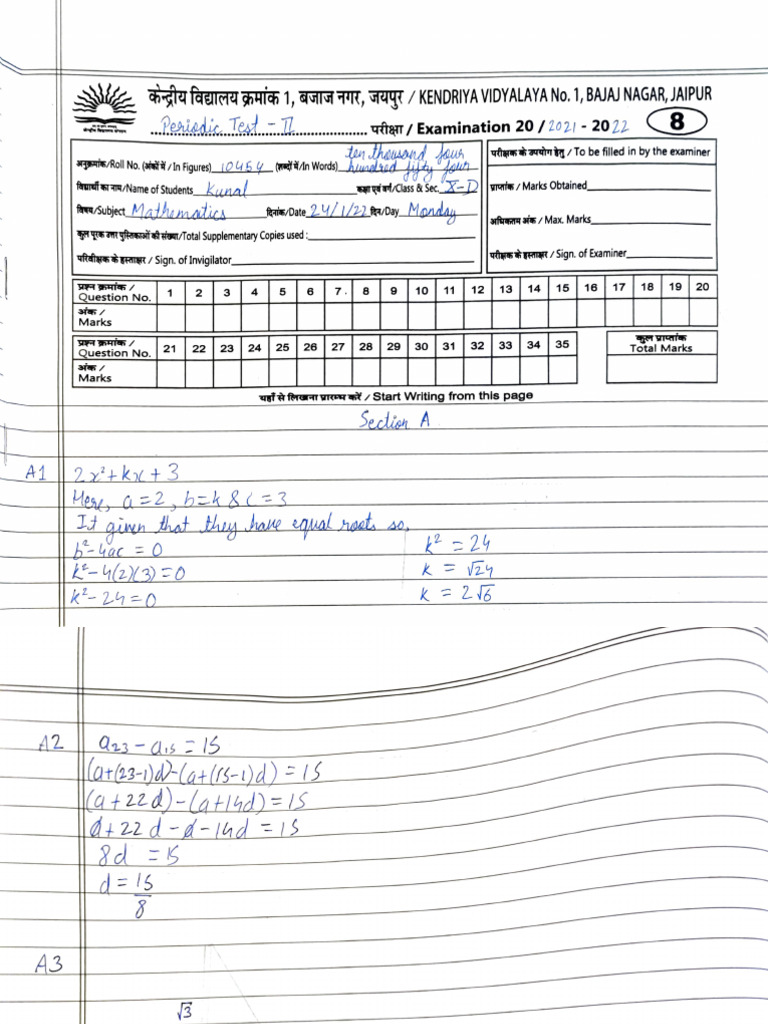 केन्द्रीय विद्यालय क्रमांक 1, बजाज नगर, जयपुर / KENDRIYA VIDYALAYA No. 1, BAJAJ NAGAR, JAIPUR
Periodic Test - II परीक्षा / Examination 20 / 2021 - 2022 8
अनुक्रमांक/Roll No. (अंकों में / In Figures) 10454 (शब्दों में/In Words) ten thousand four hundred fifty four
विद्यार्थी का नाम/Name of Students Kunal कक्षा एवं वर्ग/Class & Sec. X-D
विषय/Subject Mathematics दिनांक/Date 24/1/22 दिन/Day Monday
कुल पूरक उत्तर पुस्तिकाओं की संख्या/Total Supplementary Copies used :
परिवीक्षक के हस्ताक्षर / Sign. of Invigilator
परीक्षक के उपयोग हेतु / To be filled in by the examiner
प्राप्तांक / Marks Obtained
अधिकतम अंक / Max. Marks
परीक्षक के हस्ताक्षर / Sign. of Examiner
प्रश्न क्रमांक / Question No. 1 2 3 4 5 6 7 8 9 10 11 12 13 14 15 16 17 18 19 20
अंक / Marks
प्रश्न क्रमांक / Question No. 21 22 23 24 25 26 27 28 29 30 31 32 33 34 35
अंक / Marks
कुल प्राप्तांक Total Marks
यहाँ से लिखना प्रारम्भ करें / Start Writing from this page
Section A
A1 2x²+kx+3
Here, a=2, b=k & c=3
It given that they have equal roots so,
b²-4ac = 0
k²-4(2)(3)=0
k²-24=0
k² = 24
k = √24
k = 2√6
A2 a₂₃ - a₁₅ = 15
(a+(23-1)d)-(a+(15-1)d) = 15
(a+22d)-(a+14d)=15
a+22d-a-14d = 15
8d = 15
d = 15/8
A3
√3